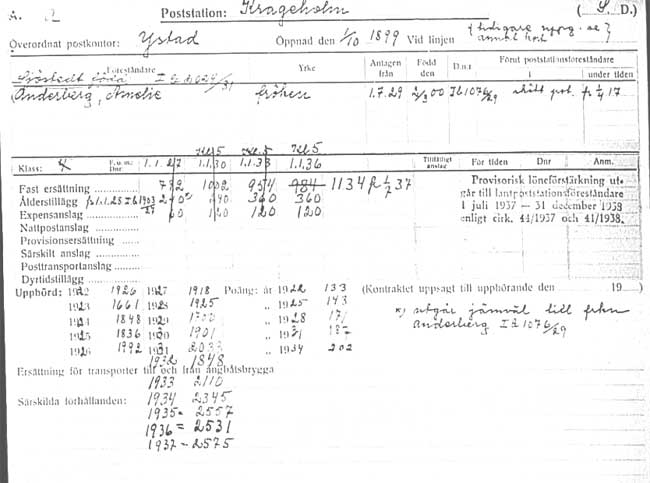 A. 2 Poststation: Krageholm (S. D.)
Överordnat postkontor: Ystad Öppnad den 1/10 1899 Vid linjen
Föreståndare Yrke Antagen från Född den D.n:r Förut poststationsföreståndare
i under tiden
Anderberg, Amelie fröken 1.7.29 00 Id 1076/29 skött pst. fr 1/4 17
Kl. 5 Kl. 5 Kl. 5
Klass: F.u.m: Dnr 1.1.27 1.1.30 1.1.33 1.1.36 Tillfälligt anslag För tiden Dnr Anm.
Fast ersättning 732 1002 954 984 1134 fr 1/7 37
Ålderstillägg 360 360
Expensanslag 60 120 120 120
Nattpostanslag
Provisionsersättning
Särskilt anslag
Posttransportanslag
Dyrtidstillägg
Provisorisk löneförstärkning utgår till lantpoststationsföreståndare
1 juli 1937 — 31 december 1938
enligt cirk. 44/1937 och 41/1938.
Uppbörd: 1922 1926 1927 1918 Poäng: år 1922 133 (Kontraktet uppsagt till upphörande den 19 )
1923 1661 1928 1925 „ 1925 143
1924 1848 1929 1700 „ 1928 171
1925 1836 1930 1901 „ 1931
1926 1992 1931 2033 „ 1934 202
x) utgår jämväl till frkn
Anderberg Id 1076/29
1932 1848
Ersättning för transporter till och från ångbåtsbrygga
1933 2110
Särskilda förhållanden: 1934 2345
1935 = 2557
1936 = 2531
1937 - 2575